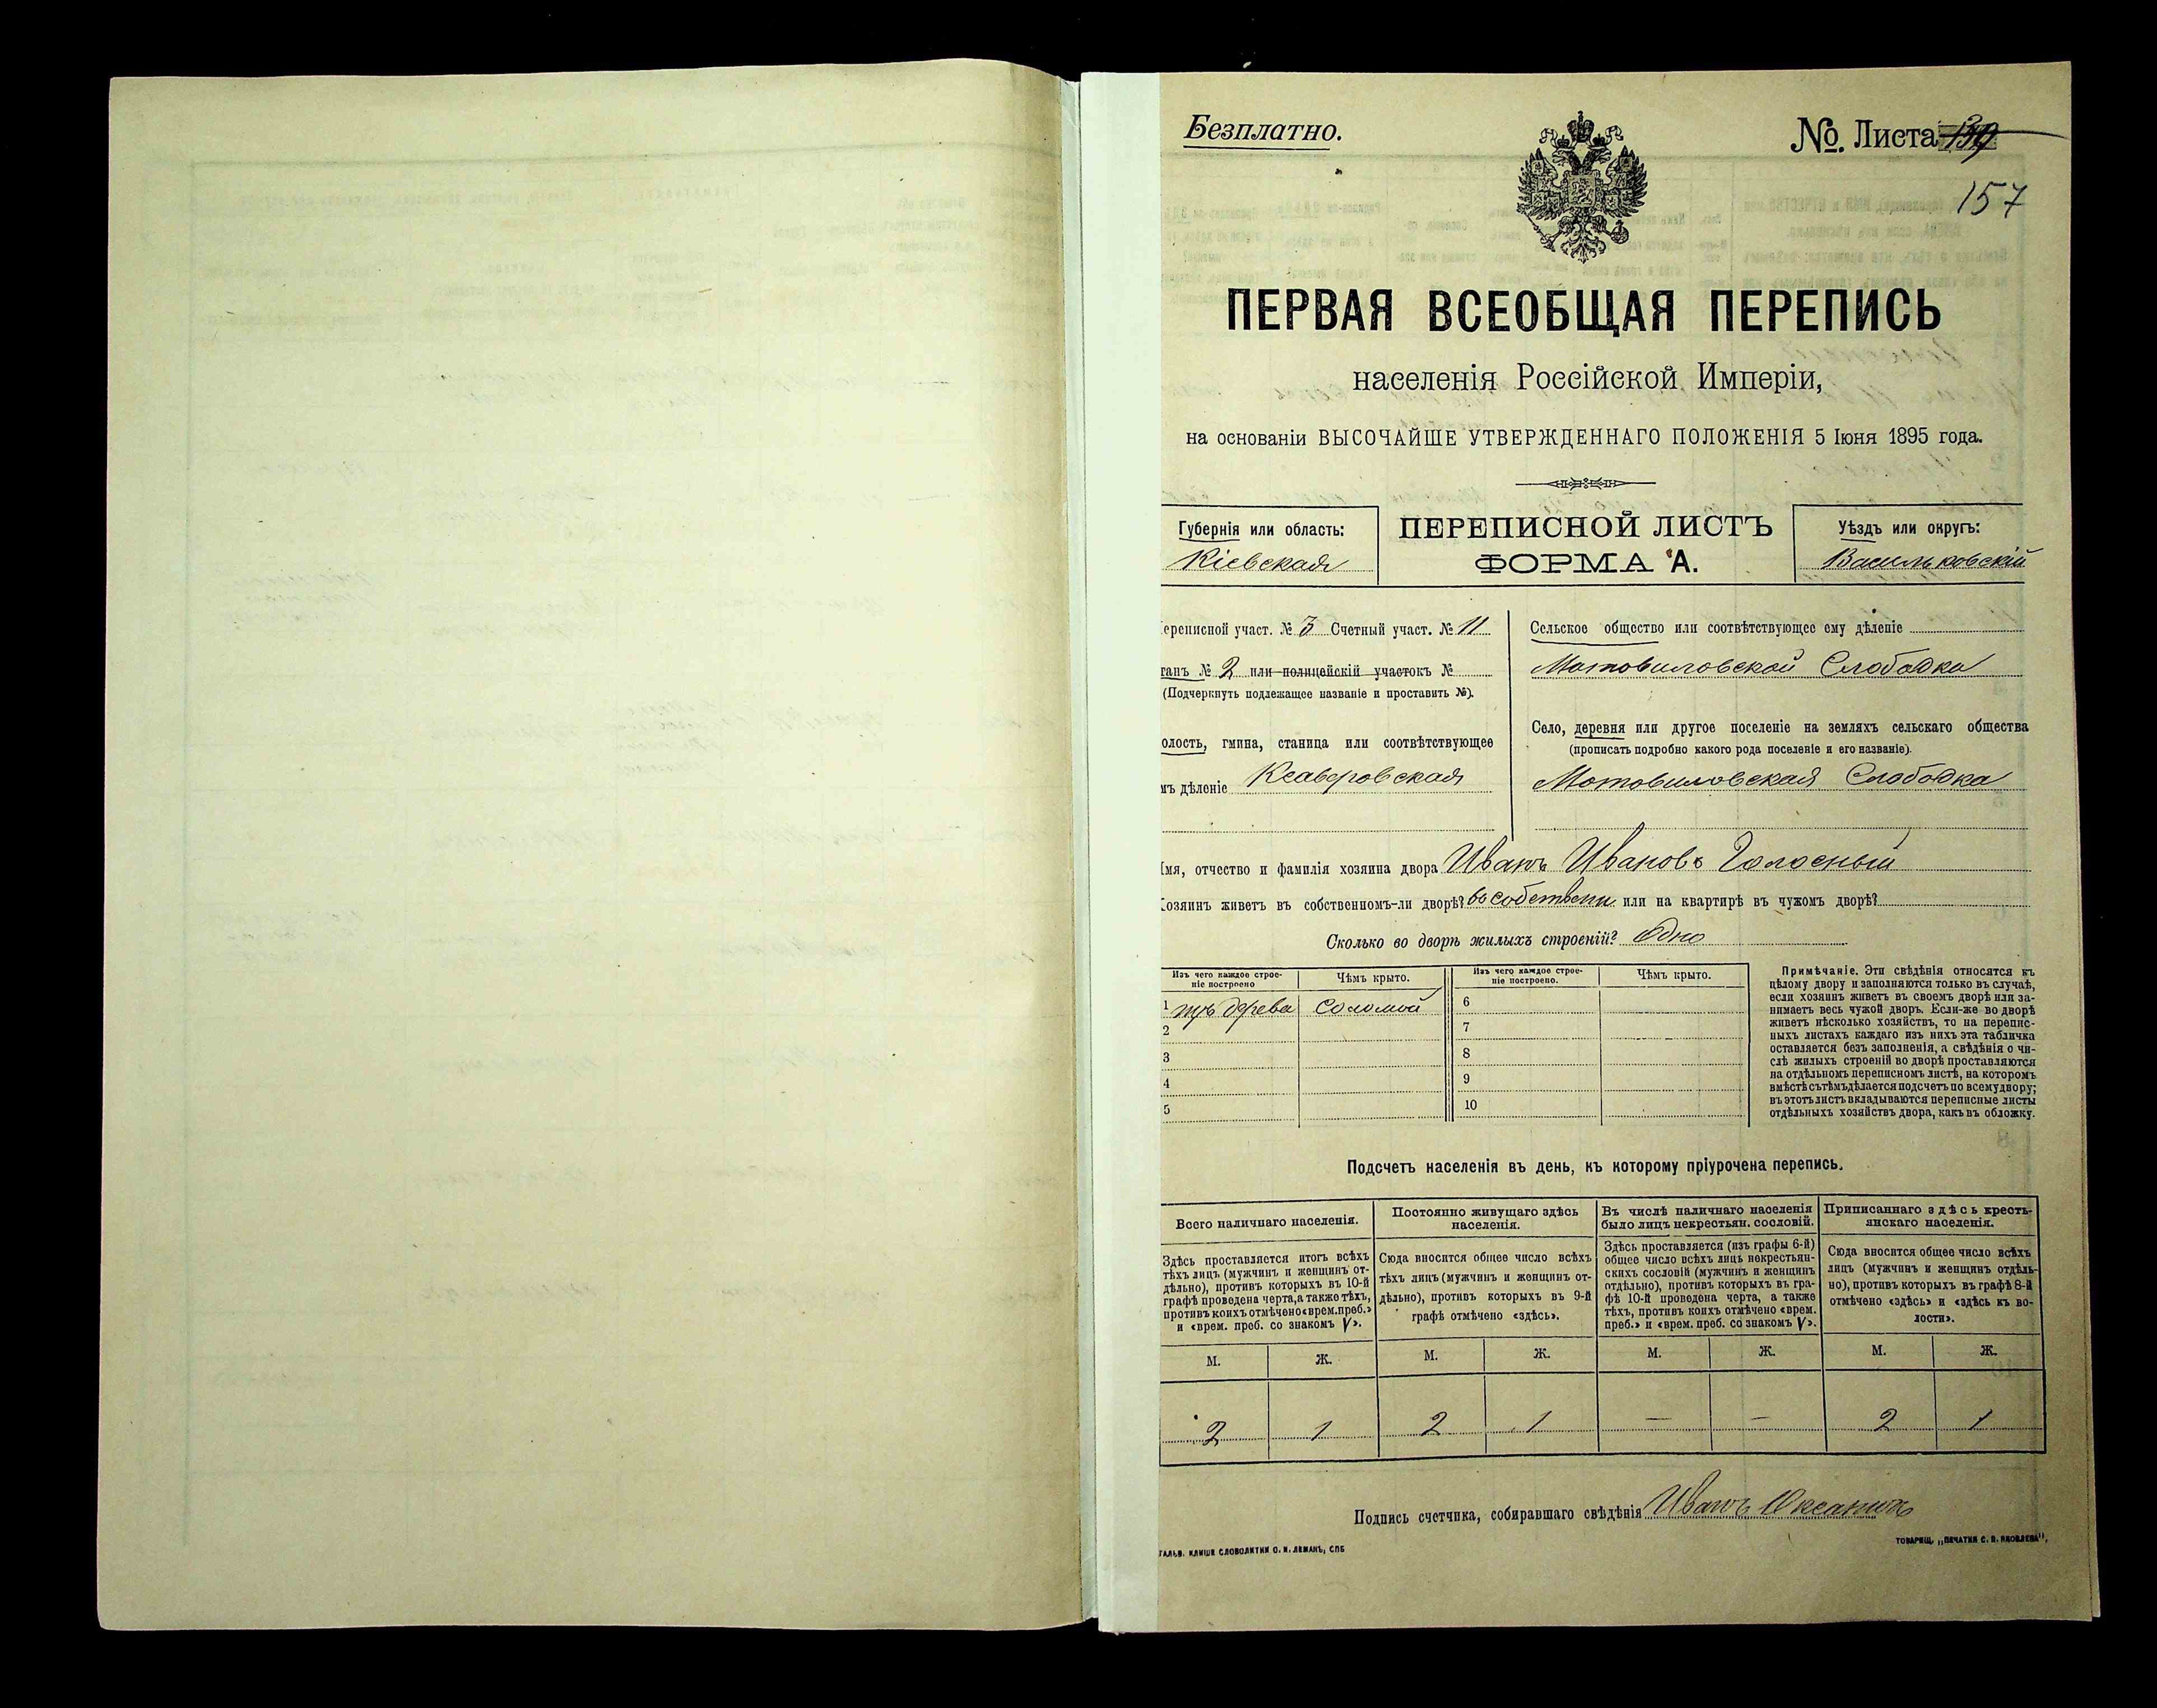 Безплатно.
№. Листа
157
ПЕРВАЯ ВСЕОБЩАЯ ПЕРЕПИСЬ
населенія Россійской Имперіи,
на основаніи ВЫСОЧАЙШЕ УТВЕРЖДЕННАГО ПОЛОЖЕНІЯ 5 Іюня 1895 года.
Губернія или область:
Кіевская
ПЕРЕПИСНОЙ ЛИСТЪ
ФОРМА А.
Уѣздъ или округъ:
Васильковскій
ереписной участ. № 3 Счетный участ. № 11
танъ № 2 или полицейскій участокъ №
(Подчеркнуть подлежащее названіе и проставить №).
олость, гмина, станица или соотвѣтствующее
мъ дѣленіе Ксаверовская
Сельское общество или соотвѣтствующее ему дѣленіе
Мотовиловской Слободка
Село, деревня или другое поселеніе на земляхъ сельскаго общества
(прописать подробно какого рода поселеніе и его названіе).
Мотовиловская Слободка
Имя, отчество и фамилія хозяина двора Иванъ Ивановъ Голосный
Хозяинъ живетъ въ собственномъ-ли дворѣ? въ собствен или на квартирѣ въ чужомъ дворѣ?
Сколько во дворѣ жилыхъ строеній? Одно
Изъ чего каждое строе-
ніе построено
Чѣмъ крыто.
Изъ чего каждое строе-
ніе построено.
Чѣмъ крыто.
1 изъ дерева Соломой 6
2 7
3 8
4 9
5 10
Примѣчаніе. Эти свѣдѣнія относятся къ
цѣлому двору и заполняются только въ случаѣ,
если хозяинъ живетъ въ своемъ дворѣ или за-
нимаетъ весь чужой дворъ. Если-же во дворѣ
живетъ нѣсколько хозяйствъ, то на перепис-
ныхъ листахъ каждаго изъ нихъ эта табличка
оставляется безъ заполненія, а свѣдѣнія о чи-
слѣ жилыхъ строеній во дворѣ проставляются
на отдѣльномъ переписномъ листѣ, на которомъ
вмѣстѣ съ тѣмъ дѣлается подсчетъ по всему двору;
въ этотъ листъ вкладываются переписные листы
отдѣльныхъ хозяйствъ двора, какъ въ обложку.
Подсчетъ населенія въ день, къ которому пріурочена перепись.
Всего наличнаго населенія.
Здѣсь проставляется итогъ всѣхъ
тѣхъ лицъ (мужчинъ и женщинъ от-
дѣльно), противъ которыхъ въ 10-й
графѣ проведена черта, а также тѣхъ,
противъ коихъ отмѣчено «врем. преб.»
и «врем. преб. со знакомъ V».
Постоянно живущаго здѣсь
населенія.
Сюда вносится общее число всѣхъ
тѣхъ лицъ (мужчинъ и женщинъ от-
дѣльно), противъ которыхъ въ 9-й
графѣ отмѣчено «здѣсь».
Въ числѣ наличнаго населенія
было лицъ некрестьян. сословій.
Здѣсь проставляется (изъ графы 6-й)
общее число всѣхъ лицъ некрестьян-
скихъ сословій (мужчинъ и женщинъ
отдѣльно), противъ которыхъ въ гра-
фѣ 10-й проведена черта, а также
тѣхъ, противъ коихъ отмѣчено «врем.
преб.» и «врем. преб. со знакомъ V».
Приписаннаго здѣсь кресть-
янскаго населенія.
Сюда вносится общее число всѣхъ
лицъ (мужчинъ и женщинъ отдѣль-
но), противъ которыхъ въ графѣ 8-й
отмѣчено «здѣсь» и «здѣсь къ во-
лости».
М. Ж. М. Ж. М. Ж. М. Ж.
2 1 2 1 — — 2 1
Подпись счетчика, собиравшаго свѣдѣнія Иванъ
ГАЛЬВ. КЛИШЕ СЛОВОЛИТНИ О. И. ЛЕМАНЪ, СПБ
ТОВАРИЩ. „ПЕЧАТНЯ С. П. ЯКОВЛЕВА".